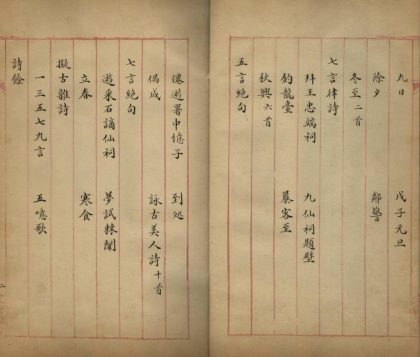 九日　戊子元旦
除夕　鄰警
冬至二首
七言律詩
拜王忠端祠　九仙祠題壁
釣龍臺　暮客至
秋興六首
五言絕句
倦遊署中憶子　到処
偶成　詠古美人詩十首
七言絕句
遊采石謫仙祠　夢試棘闈
立春　寒食
擬古雜詩
一三五七九言　五噫歌
詩餘